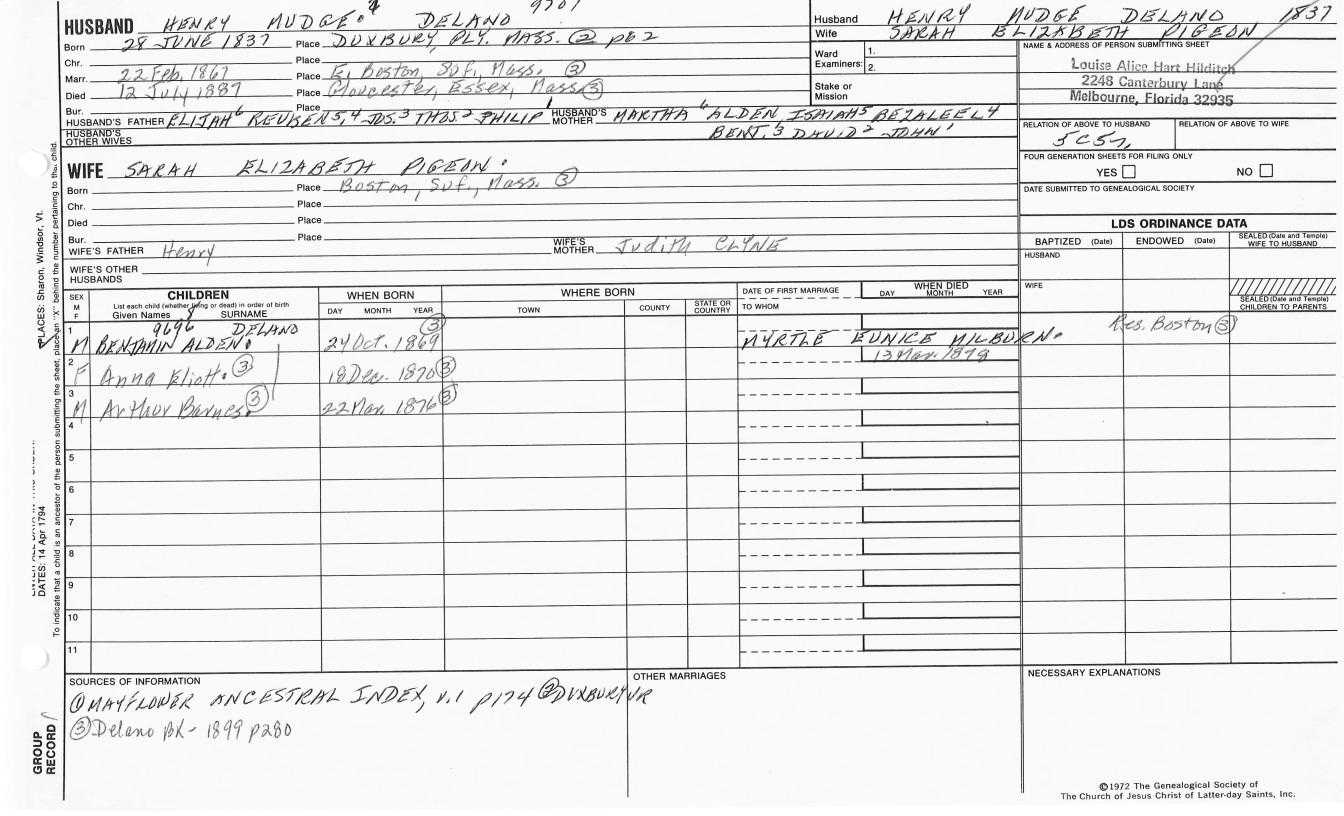 HUSBAND HENRY MUDGE DELANO
Born 28 JUNE 1837 Place DUXBURY, PLY. MASS. ② pg 2
Chr. Place
Marr. 22 Feb. 1867 Place E. Boston, Suf., Mass. ③
Died 12 July 1887 Place Gloucester, Essex, Mass ③
Bur. Place
HUSBAND'S FATHER ELIJAH 6 REUBEN 5, 4 JOS. 3 THOS 2 PHILIP 1 HUSBAND'S MOTHER MARTHA 6 ALDEN ISAIAH 5 BEZALEEL 4
HUSBAND'S OTHER WIVES BENJ. 3 DAVID 2 JOHN 1
WIFE SARAH ELIZABETH PIGEON
Born Place Boston, Suf., Mass. ③
Chr. Place
Died Place
Bur. Place
WIFE'S FATHER Henry WIFE'S MOTHER Judith CLYNE
WIFE'S OTHER HUSBANDS
Husband HENRY MUDGE DELANO 1837
Wife SARAH ELIZABETH PIGEON
Ward Examiners: 1.
2.
Stake or Mission
NAME & ADDRESS OF PERSON SUBMITTING SHEET
Louise Alice Hart Hilditch
2248 Canterbury Lane
Melbourne, Florida 32935
RELATION OF ABOVE TO HUSBAND RELATION OF ABOVE TO WIFE
FOUR GENERATION SHEETS FOR FILING ONLY
YES NO
DATE SUBMITTED TO GENEALOGICAL SOCIETY
LDS ORDINANCE DATA
BAPTIZED (Date) ENDOWED (Date) SEALED (Date and Temple) WIFE TO HUSBAND
HUSBAND
WIFE
SEALED (Date and Temple) CHILDREN TO PARENTS
SEX M F
CHILDREN
List each child (whether living or dead) in order of birth
Given Names SURNAME
WHEN BORN
DAY MONTH YEAR
WHERE BORN
TOWN COUNTY STATE OR COUNTRY
DATE OF FIRST MARRIAGE
TO WHOM
WHEN DIED
DAY MONTH YEAR
1 9696 DELANO ③ Res. Boston ③
M BENJAMIN ALDEN 24 Oct. 1869 MYRTLE EUNICE MILBURN
2 13 Mar. 1878
F Anna Eliott ③ 18 Dec. 1870 ③
3
M Arthur Barnes ③ 22 Mar. 1876 ③
4
5
6
7
8
9
10
11
SOURCES OF INFORMATION
① MAYFLOWER ANCESTRAL INDEX, V.1 p174 ② DUXBURY VR
③ Delano BK - 1899 p280
OTHER MARRIAGES
NECESSARY EXPLANATIONS
©1972 The Genealogical Society of
The Church of Jesus Christ of Latter-day Saints, Inc.
PLACES: Sharon, Windsor, Vt.
DATES: 14 Apr 1794
To indicate that a child is an ancestor of the person submitting the sheet, place an "X" behind the number pertaining to that child.
GROUP RECORD